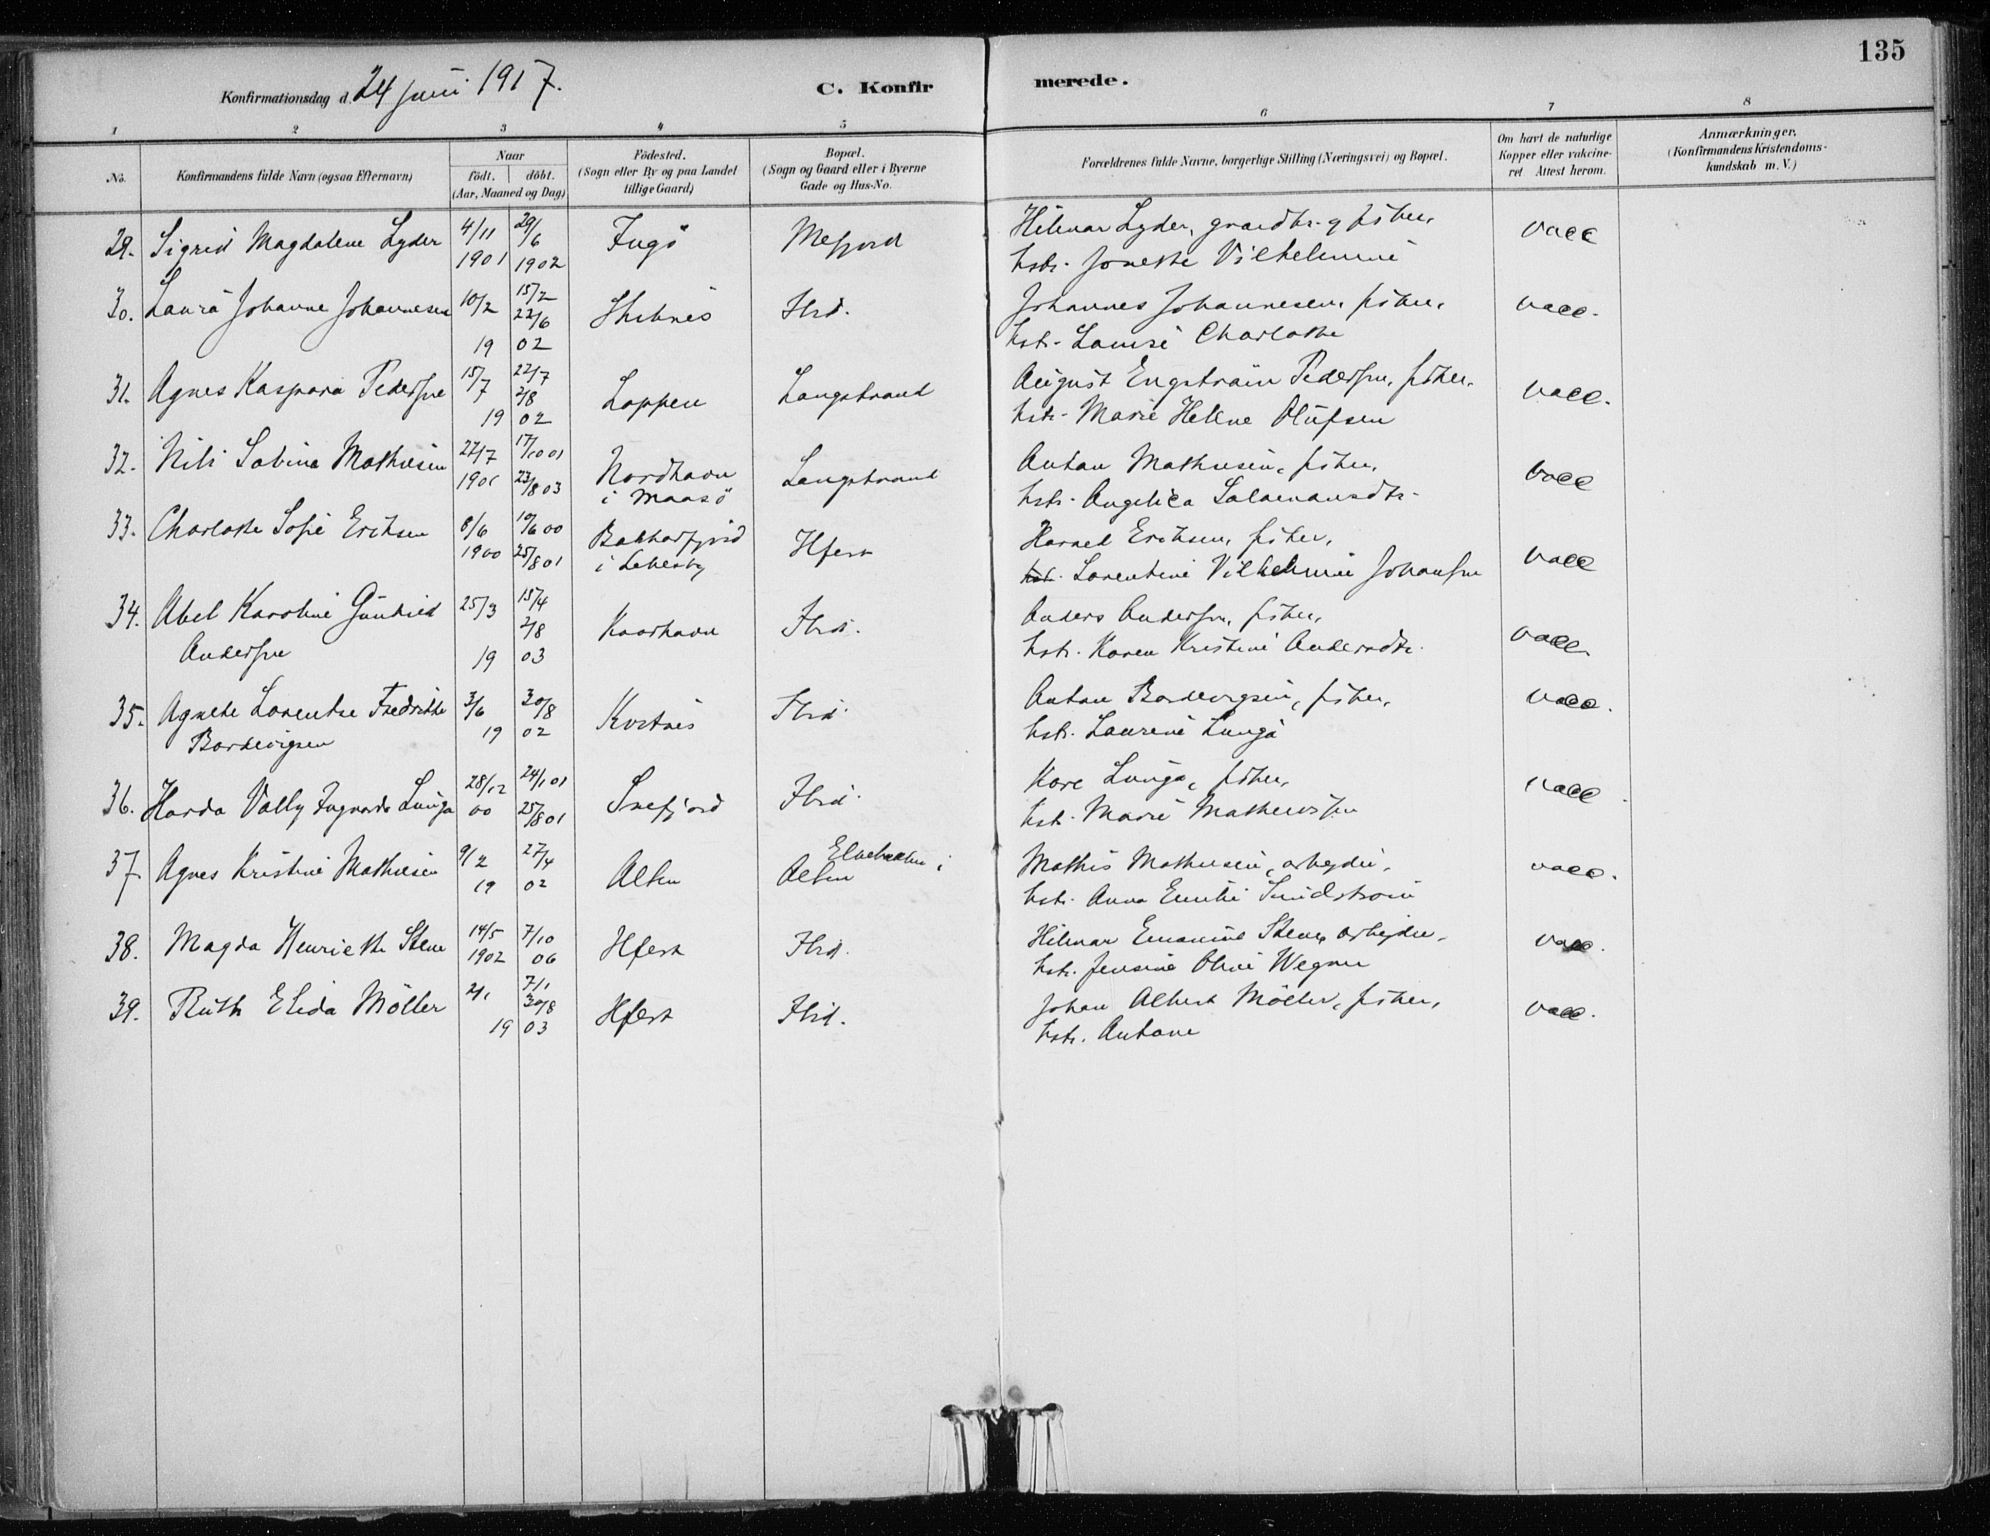 135
Konfirmationsdag d. 24 juni 1917.
C. Konfirmerede.
1 2 3 4 5 6 7 8
No. Konfirmandens fulde Navn (ogsaa Efternavn) Naar födt. döbt. (Aar, Maaned og Dag) Födested. (Sogn eller By og paa Landet tillige Gaard) Bopæl. (Sogn og Gaard eller i Byerne Gade og Hus-No. Forældrenes fulde Navne, borgerlige Stilling (Næringsvei) og Bopæl. Om havt de naturlige Kopper eller vakcineret. Attest herom. Anmærkninger. (Konfirmandens Kristendomskundskab m. V.)
29. Sigrid Magdalene Lyder 4/11 29/6 Ingö Mefjord Hilmar Lyder, gaardbr. og fisker, vacc
1901 1902 hstr. Jonette Vilhelmine
30. Laura Johanne Johannesen 10/2 15/2 Ibid. Johannes Johannesen, fisker, vacc.
22/6
19 02 hstr. Lovise Charlotte
31. Agnes Kaspara Pedersen 15/7 22/7 Loppen Langstrand August Engström Pedersen, fisker, vacc.
2/8
19 02 hstr. Marie Helene Olufsen
32. Sabina Mathisen 27/7 17/10 01 Nordhavn Langstrand Anton Mathisen, fisker, vacc
1901 23/8 03 i Maasö hstr. Angelica Salamonsdtr.
33. Charlotte Sofie Eriksen 8/6 10/6 00 Bakkarfjord Hfest Eriksen, fisker, vacc
1900 25/8 01 i Lebesby hstr. Lorentine Vilhelmine Johansen
34. Abel Karoline 25/3 15/4 Kaarhavn Ibid. Anders Andersen, fisker, vacc.
2/8
Andersen 19 03 hstr. Karen Kristine Andersdtr.
35. Agnete Lorentse Fredrikke 3/6 30/8 Ibid. Anton Bordevigsen, fisker, vacc.
Bordevigsen 19 02 hstr. Laurine Lunga
36. Harda Vally Lunga 28/12 24/1 01 Snefjord Ibid. Kare Lunga, fisker, vacc.
00 25/8 01 hstr. Marie
37. Agnes Kristine Mathisen 9/2 27/4 Alten Elvebakken i Mathis Mathisen, arbeider, vacc.
19 02 Alten hstr. Anna Emilie
38. Magda Henriette Stene 14/5 7/10 Hfest Ibid. Hilmar Stene, arbeider, vacc.
1902 06 hstr. Jensine Oline Wegner
39. Ruth Elida Möller 2/1 7/1 Hfest Ibid. Johan Albert Möller, fisker, vacc.
30/8
19 03 hstr. Antone